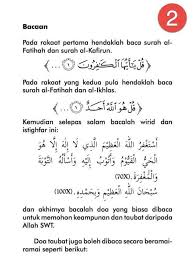 2
Bacaan
Pada rakaat pertama hendaklah baca surah al-
Fatihah dan surah al-Kafirun.
﴿قُلْ يَٰٓأَيُّهَا ٱلْكَٰفِرُونَ ...﴾
Pada rakaat yang kedua pula hendaklah baca
surah al-Fatihah dan al-Ikhlas.
﴿قُلْ هُوَ ٱللَّهُ أَحَدٌ ...﴾
Kemudian selepas salam bacalah wirid dan
istighfar ini:
أَسْتَغْفِرُ اللهَ الْعَظِيْمَ الَّذِي لَا إِلَهَ إِلَّا هُوَ
الْحَيُّ الْقَيُّوْمُ وَأَتُوْبُ إِلَيْهِ وَأَسْأَلُهُ التَّوْبَةَ
وَالْمَغْفِرَةَ. (70X)
سُبْحَانَ اللهِ الْعَظِيْمِ وَبِحَمْدِهِ (100X)
dan akhirnya bacalah doa yang biasa dibaca
untuk memohon keampunan dan taubat daripada
Allah SWT.
Doa taubat juga boleh dibaca secara beramai-
ramai seperti berikut: